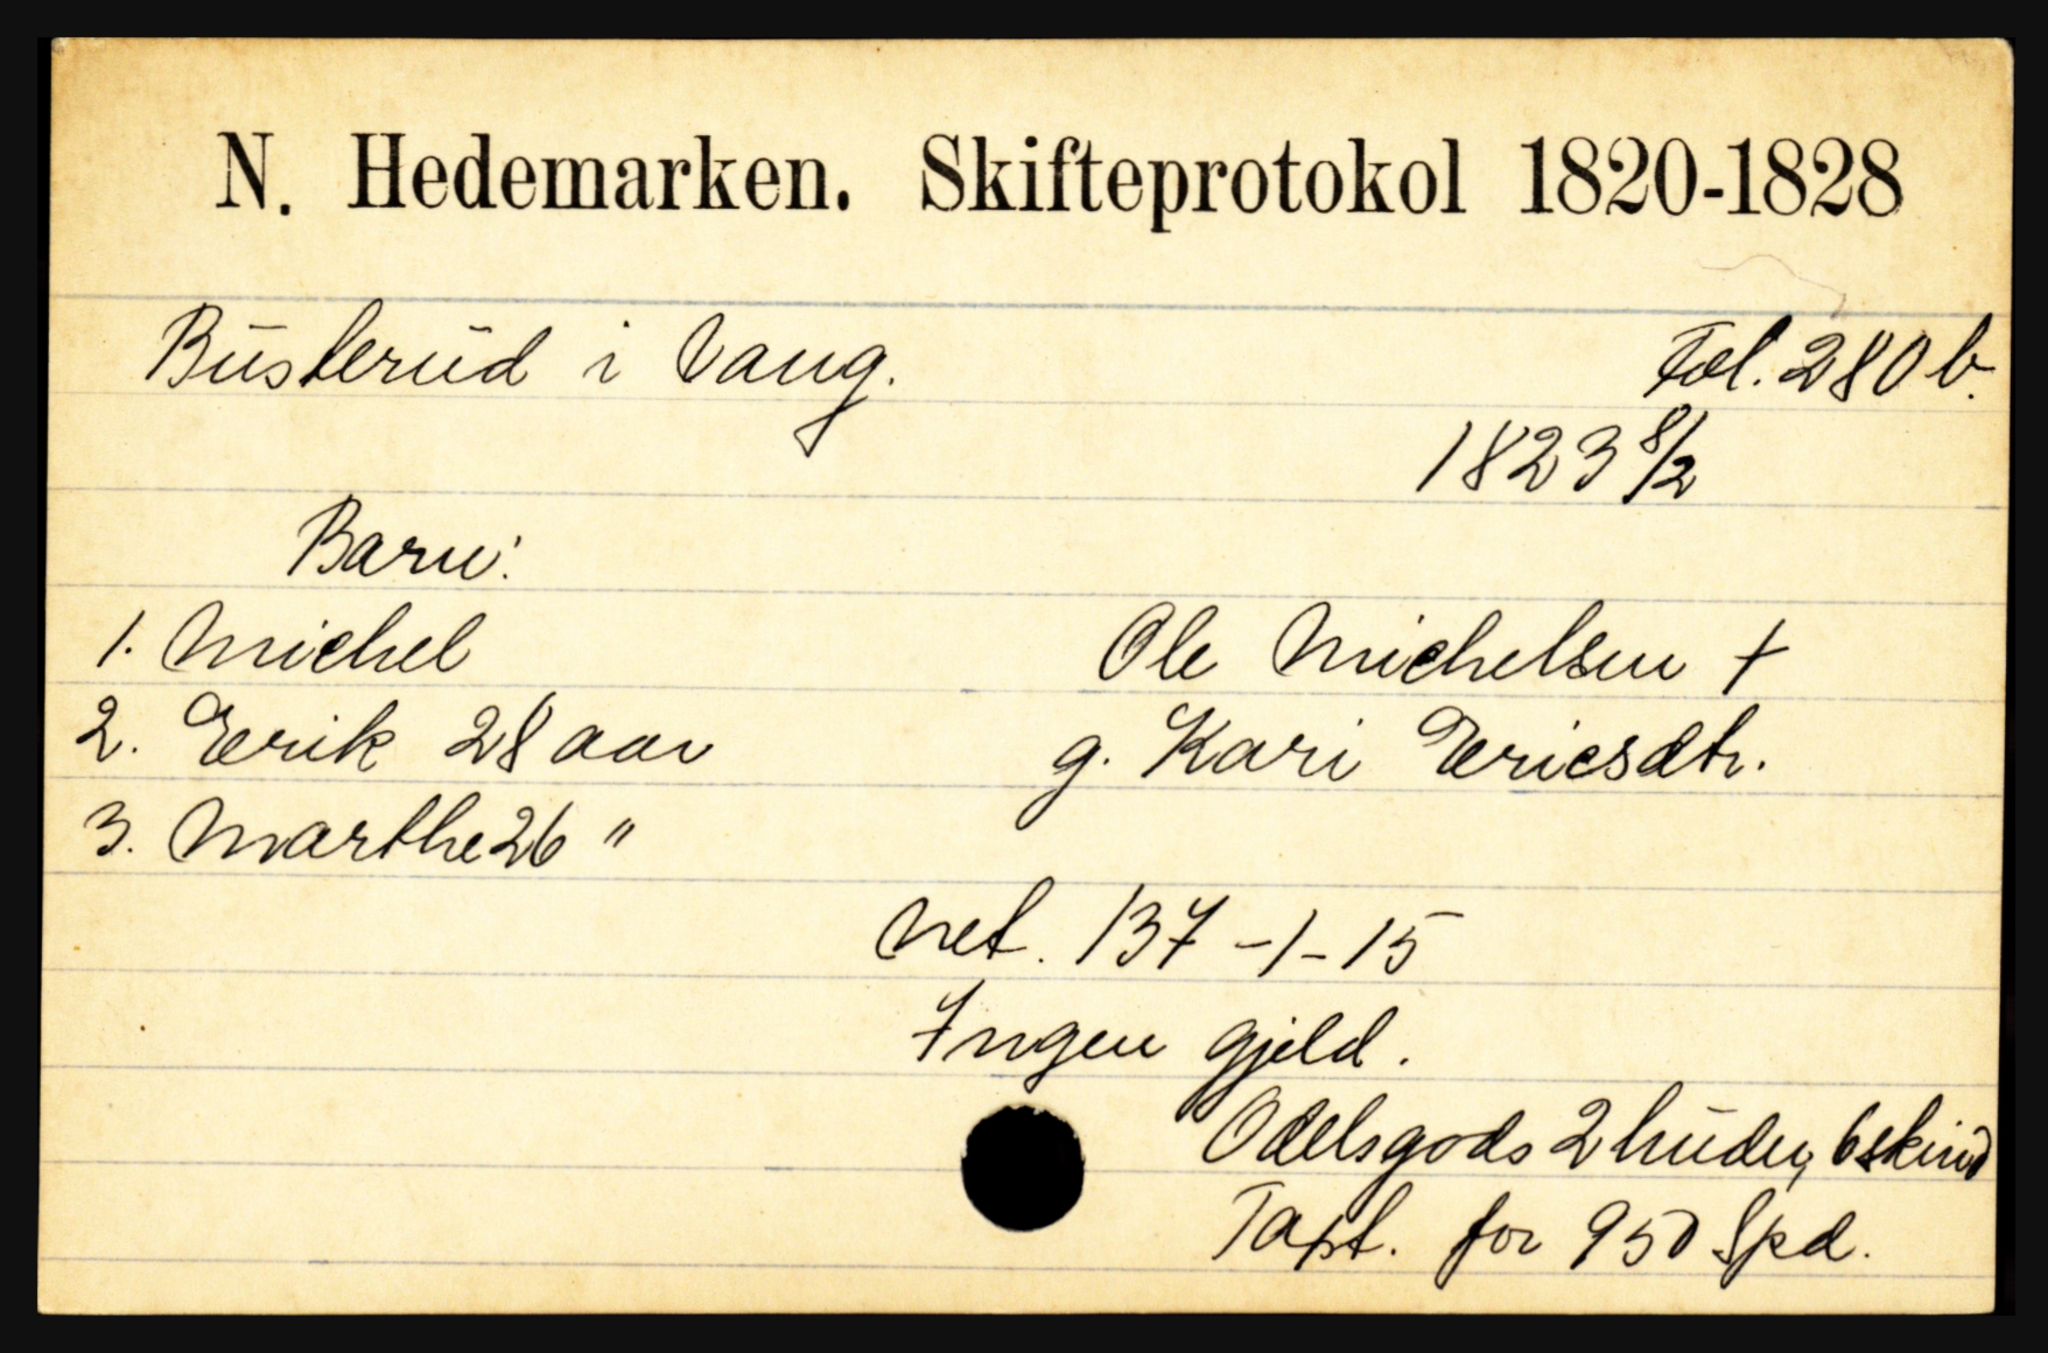 N. Hedemarken. Skifteprotokol 1820-1828
Busterud i Vang. Fol. 280 b.
1823 8/2
Barn:
1. Michel
Ole Michelsen +
2. Erik 28 aar
g. Kari Ericsdtr.
3. Marthe 26 "
Net. 137-1-15
Ingen gjeld.
Odelsgods 2 huder, 6 skind
Taxt. for 950 Spd.